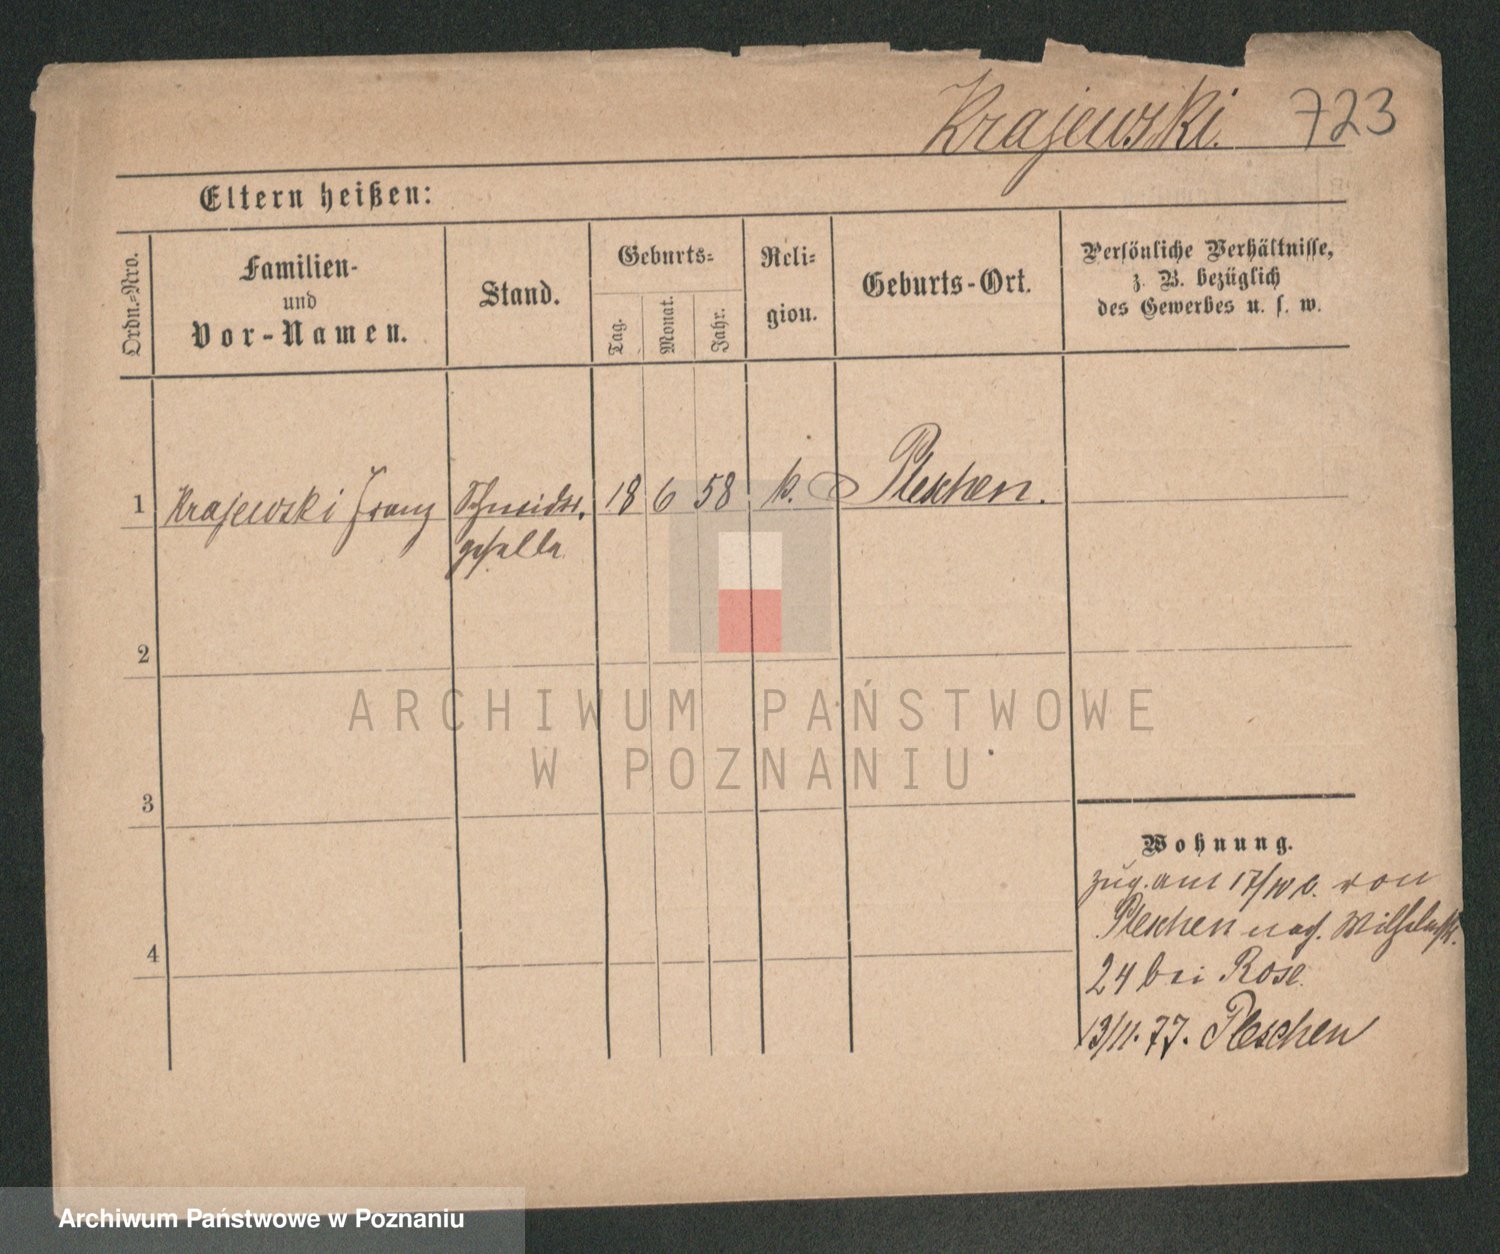 Krajewski. 723
Eltern heißen:
Ordn.-Nro.
Familien-
und
Vor-Namen.
Stand.
Geburts-
Tag.
Monat.
Jahr.
Reli-
gion.
Geburts-Ort.
Persönliche Verhältnisse,
z. B. bezüglich
des Gewerbes u. s. w.
1 Krajewski Franz Schmiede- 18 6 58 k. Pleschen.
geselle
2
3
4
Wohnung.
zug. am 17/10 c. von
Pleschen nach Wilhelmstr.
24 bei Rose.
13/11. 77. Pleschen
ARCHIWUM PAŃSTWOWE
W POZNANIU
Archiwum Państwowe w Poznaniu